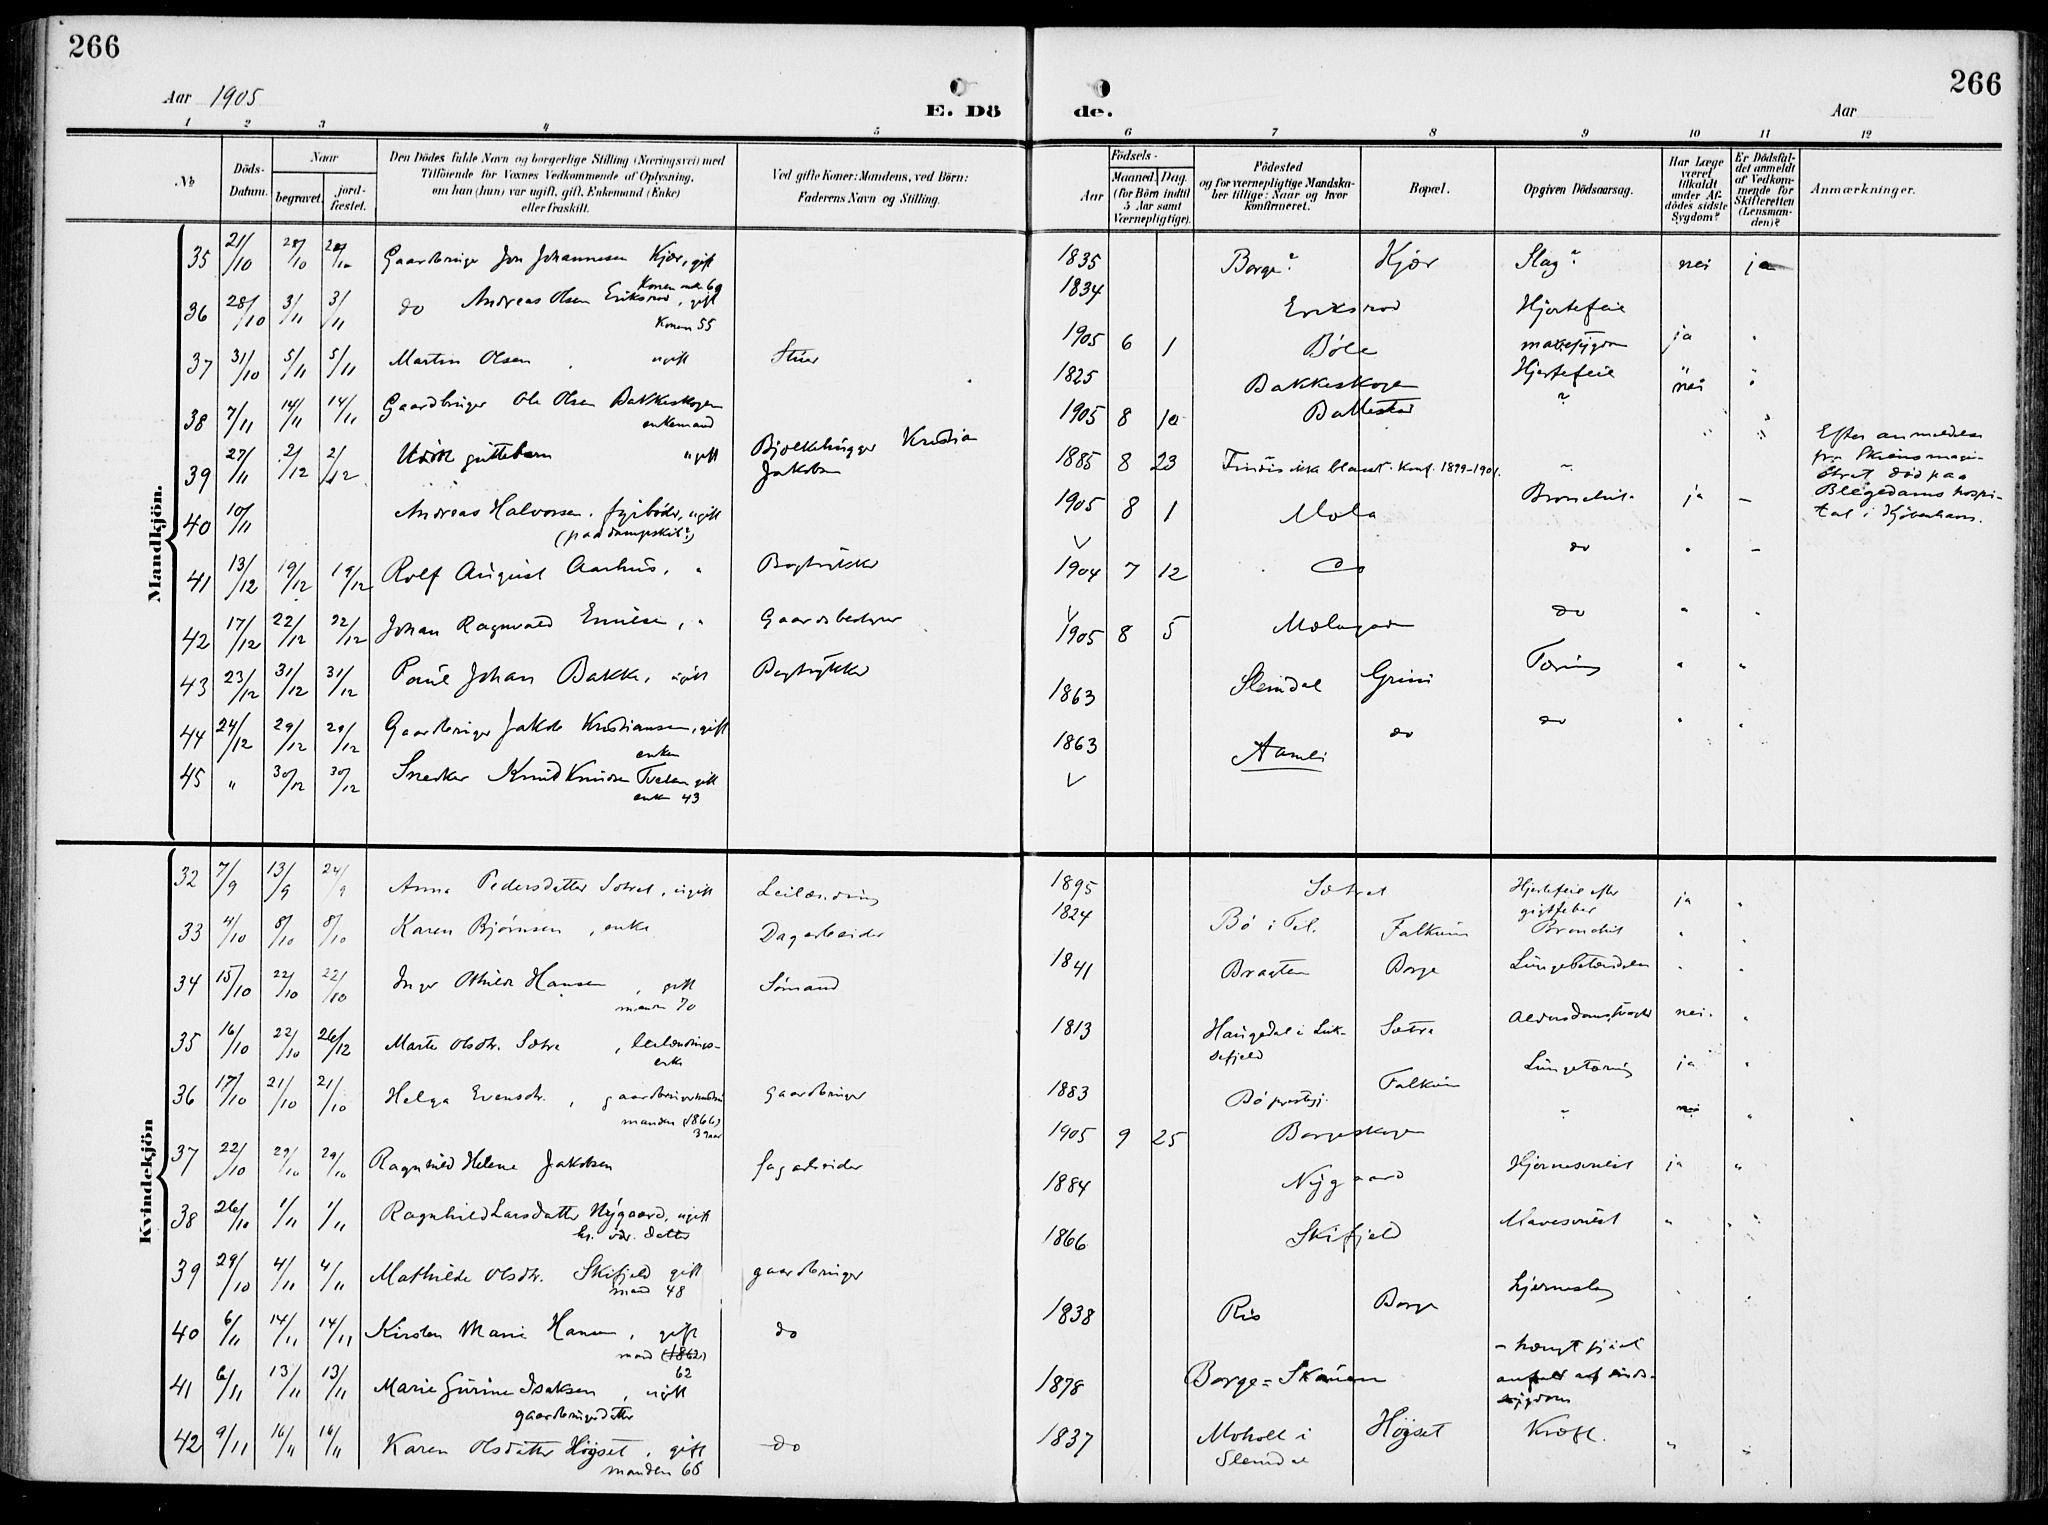 266
Aar 1905
E. Dö
1 2 3 4 5
№
Döds-Datum.
Naar
begravet.
jord-fæstet.
Den Dödes fulde Navn og borgerlige Stilling (Næringsvei) med
Tilföiende for Voxnes Vedkommende af Oplysning,
om han (hun) var ugift, gift, Enkemand (Enke)
eller fraskilt.
Ved gifte Koner: Mandens, ved Börn:
Faderens Navn og Stilling.
Mandkjön.
35 21/10 28/10 28/10 Gaardbruger Jon Johannesen Kjær, gift
Konen 69
36 28/10 3/11 3/11 do Andreas Olsen Eriksrod, gift
Konen 55
37 31/10 5/11 5/11 Martin Olsen ugift
38 7/11 14/11 14/11 Gaardbruger Ole Olsen Bakkeskogen
enkemand
39 27/11 2/12 2/12 Udöbt guttebarn " ugift Kristian
Jakobsen
40 10/11 Andreas Halvorsen, fyrböder, ugift
(paa dampskib?)
41 13/12 19/12 19/12 Rolf August Aarhus, " Bogtrykker
42 17/12 22/12 22/12 Johan Ragnvald Emilsen, " Gaardsbestyrer
43 23/12 31/12 31/12 Poul Johan Bakke, ugift Bogtrykker
44 24/12 29/12 29/12 Gaardbruger Jakob Kristiansen, gift
enken
45 " 30/12 30/12 Snedker Knud Knudsen Tveten gift
enken 43
Kvindekjön
32 7/9 13/9 24/9 Anna Pedersdatter Sætret, ugift Leilænding
33 4/10 8/10 8/10 Karen Bjørnsen, enke Dagarbeider
34 15/10 22/10 22/10 Inger Othilde Hansen, gift Sömand
manden 70
35 16/10 22/10 26/12 Marte Olsdtr. Sætre, leilændings-
enke
36 17/10 21/10 21/10 Helga Evensdtr., gaardbruger
manden (1866)
39 aar
37 22/10 29/10 29/10 Ragnhild Helene Jakobsen
38 26/10 1/11 1/11 Ragnhild Larsdatter Nygaard, ugift
datter
39 29/10 4/11 4/11 Mathilde Olsdtr. Skifjeld gift gaardbruger
mand 48
40 6/11 14/11 14/11 Kirsten Marie Hansen, gift do
mand (1862)
62
41 6/11 13/11 13/11 Marie Gurine Isaksen, ugift
gaardbrugerdatter
42 9/11 16/11 16/11 Karen Olsdatter Högset, gift do
manden 65
266
de.
Aar
6 7 8 9 10 11 12
Aar
Födsels-
Maaned. Dag.
(for Börn indtil
5 Aar samt
Værnepligtige).
Födested
og for værnepligtige Mandska-
ber tillige: Naar og hvor
Konfirmeret.
Bopæl.
Opgiven Dödsaarsag.
Har Læge
været
tilkaldt
under Af-
dödes sidste
Sygdom?
Er Dödsfal-
det anmeldt
af Vedkom-
mende for
Skifteretten
(Lensman-
den)?
Anmærkninger.
1835 Borge? Kjær Slag? nei ja
1834 Eriksrod Hjertefeil
1905 6 1 Böle mavesygdom ja "
1825 Bakkeskogen Hjertefeil nei "
1905 8 10 Ballestad ?
1885 8 23 Findes ikke blandt Konf. 1899-1901.
Efter anmeldelse
fra Skiens magi-
strat död paa
Blegedams hospi-
tal i Kjöbenhavn.
1905 8 1 Mæla Bronchit. ja
1904 7 12 do do
1905 8 5 Mælagaden do
1863 Slemdal Grini Tæring
1863 Aamli do do
1895 Sætret Hjertefeil efter
gigtfeber ja
1824 Bö i Tel. Falkum Bronchit
1841 Bragten Borge Lungebetændelse
1813 Haugedal i Luk-
sefjeld Sætre nei
1883 Bö prestegj. Falkum Lungetæring ja
1905 9 25 Borgeskogen
1884 Nygaard ja
1866 Skifjeld
1838 Riis Borge Hjerneslag
1878 Borge-Skauen
anfald af sinds-
sygdom
1837 Moholt i
Slemdal Högset Kræft.